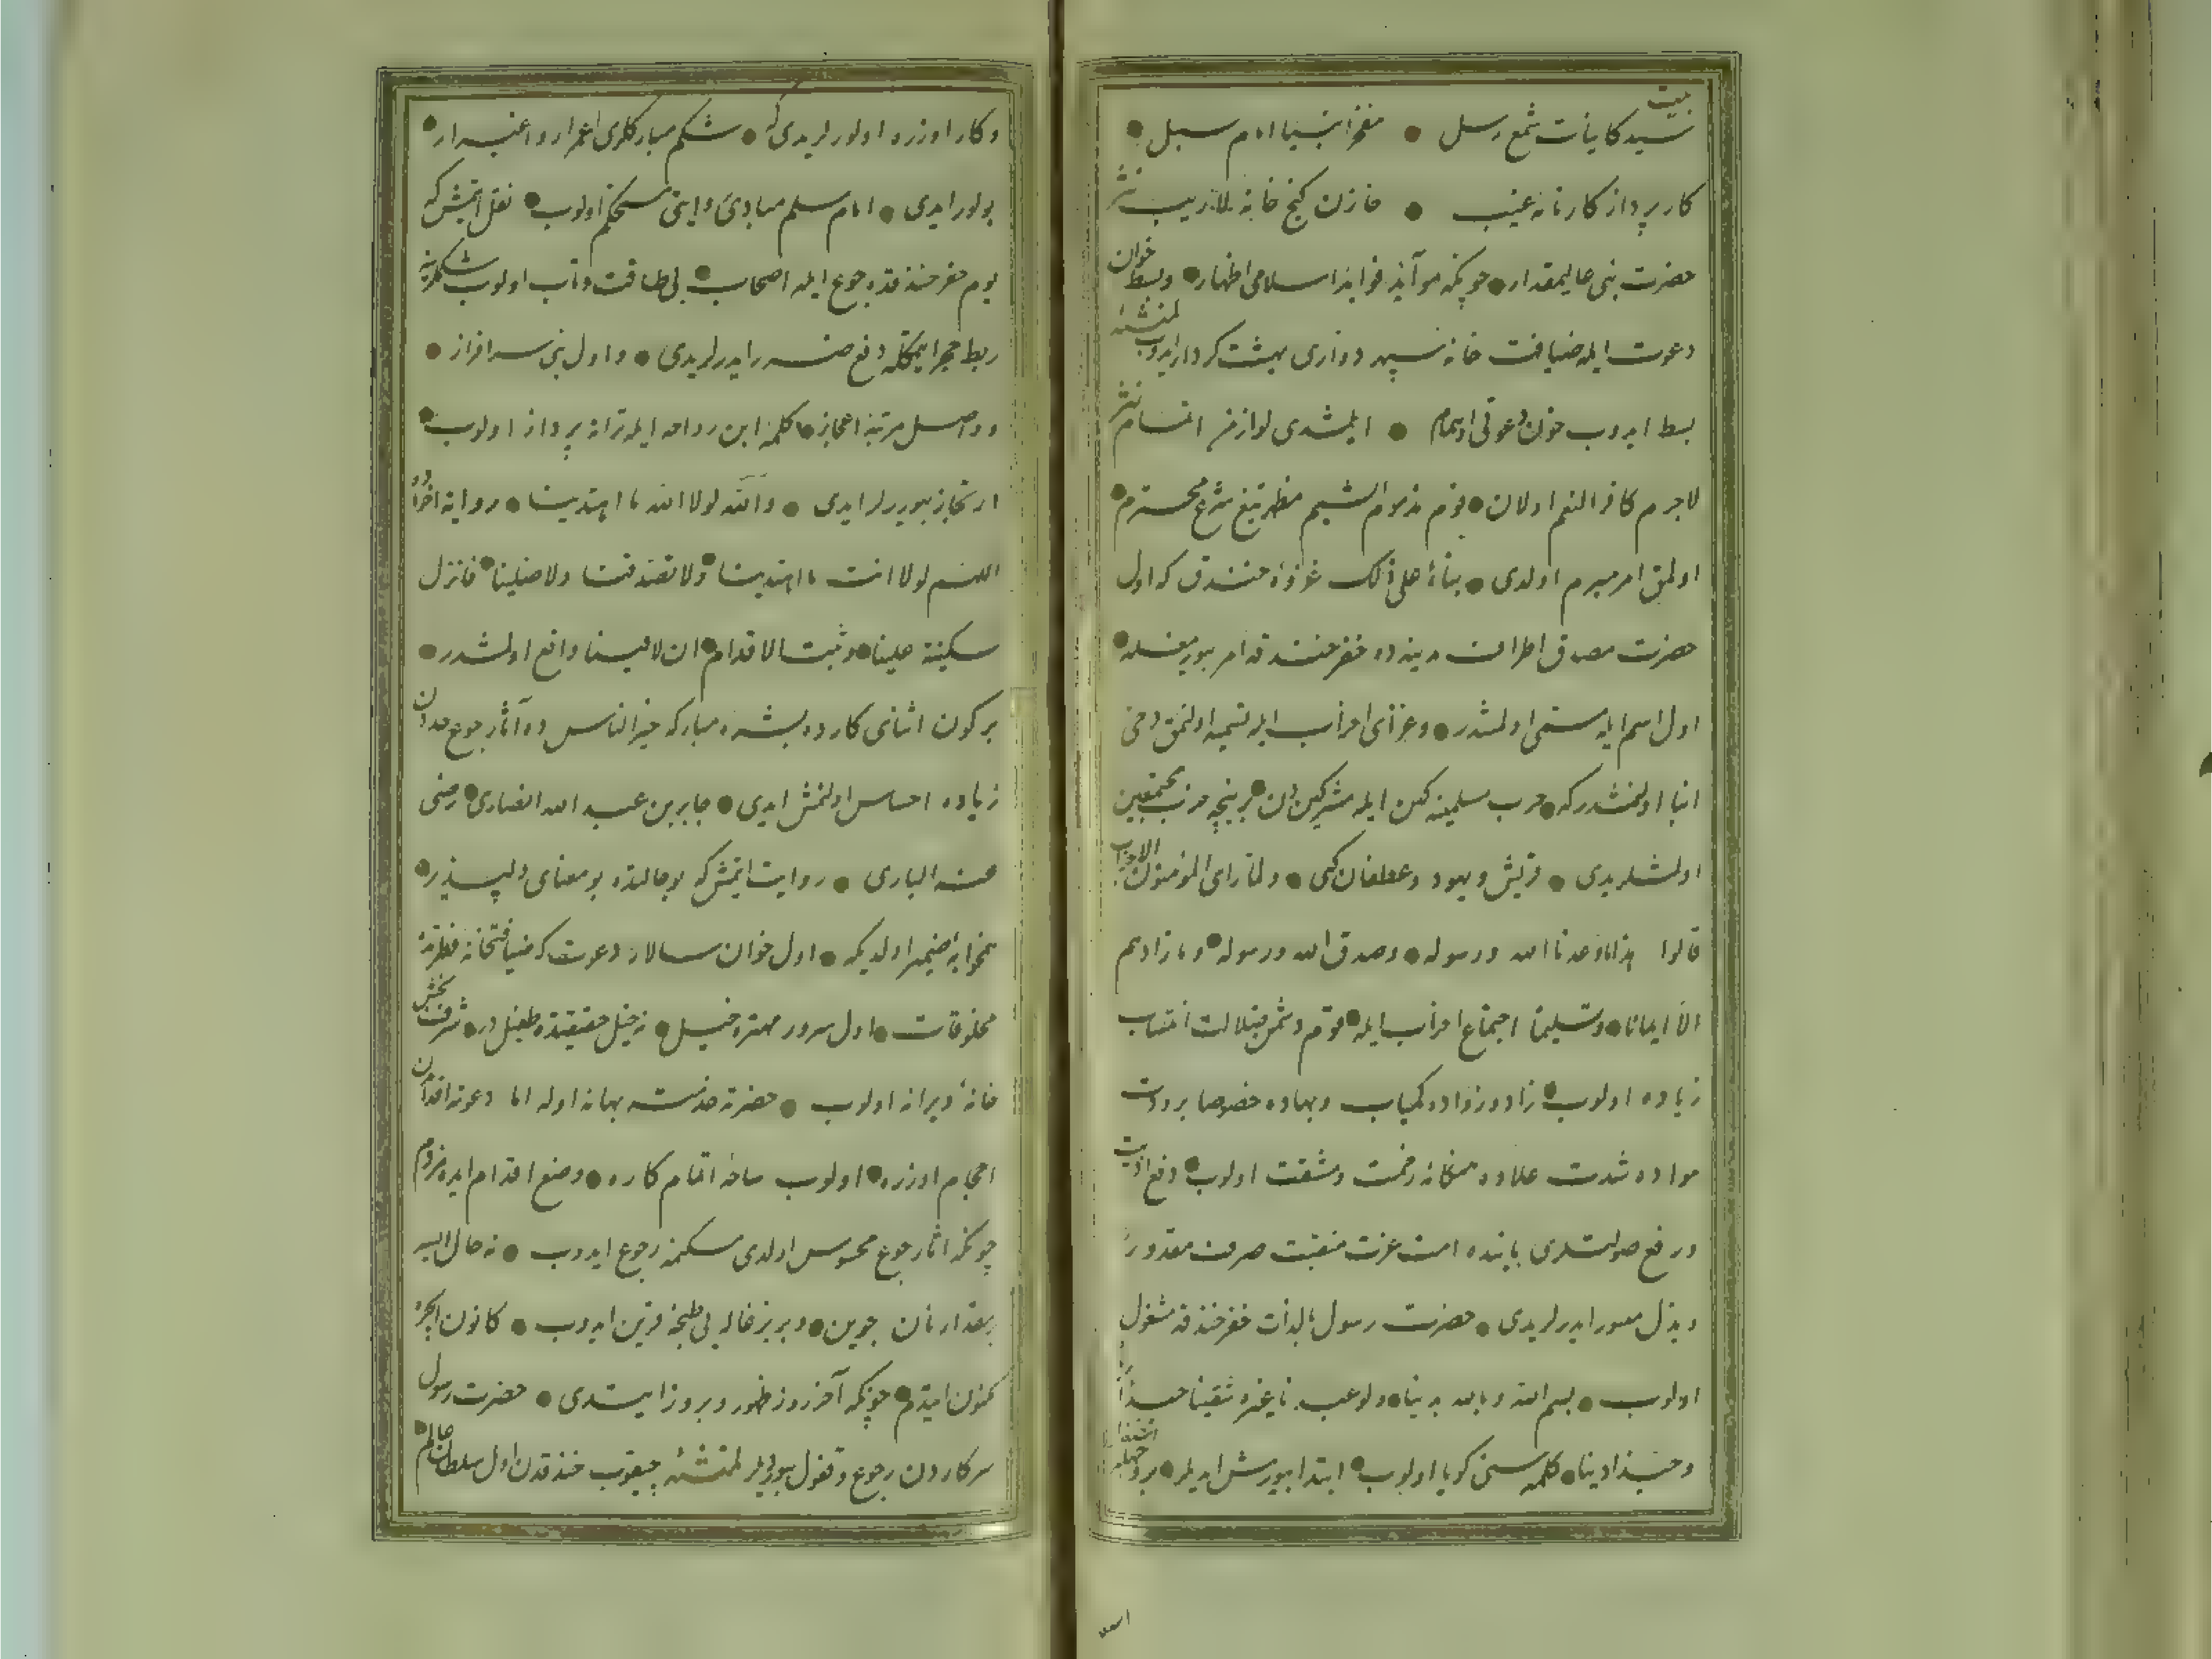 بیت
سید کاینات شمع رسل مفخر انبیا امام سبل
کارپرداز کارخانه غیب خازن کنج خانه لاریب نثر
حضرت نبی عالیمقدار چونکه موآید فواید اسلامی اظهار وبسط خوان
دعوت ایله ضیافت خانه سپهر دواری بهشت کردار ایدوب لمنشئه
بسط ایدوب خوان دعوتی اوهمام ایلمشدی لوازمن اتمام نثر
لاجرم کافر النعم اولان قوم مذموم الشیم مظهر تیغ شرع محترم
اولمق امر مبرم اولدی بناءً علی ذلک غزوهٔ خندق که اول
حضرت مصدق اطراف مدینه ده حفر خندقه امر بیورمغله
اول اسم ایله مسمی اولمشدر وغزای احزاب ایله تسمیه اولنمق دخی
انبا اولنمشدر که حرب مسلمینه کهن ایله مشرکین دن بر نیچه حزب مجتمعین
اولمشلریدی قریش و یهود وغطفان کبی ولما رای المؤمنون الاحزاب
قالوا هذا ما وعدنا الله ورسوله وصدق الله ورسوله وما زادهم
الا ایمانا وتسلیما اجتماع احزاب ایله قوم دشمن ضلالت انتساب
زیاده اولوب زاد وزواده کمیاب وبهاده خصوصا برودت
هواده شدت علاوه هنکامه زحمت ومشقت اولوب دفع اذیت
ورفع صولتلری بابنده امت عزت منقبت صرف مقدور
وبذل میسور ایدرلریدی حضرت رسول بالذات حفر خندقه مشغول
اولوب بسم الله وبالله بدینا ولو عبدنا غیره شقینا حبذا ربا
وحبذا دینا کلمه سنی کویا اولوب ابتدا بیورمش ایدیلر
وکار اوزره اولورلریدی که شکم مبارکلری اغبرار واغبرار
بولور ایدی امام سلم مبادی وایتی مستحکم اولوب نقل ایتمش که
یوم حفر خندقده جوع ایله اصحاب بی طاقت وتاب اولوب شکملرینه
ربط حجر ایتمکله دفع ضرر ایدرلریدی واول نبی سرافراز
وواصل مرتبه اعجاز کلمه ابن رواحه ایله ترانه پرداز اولوب
ارتجاز بیوررلر ایدی والله لولا الله ما اهتدینا روایة اخری
اللهم لولا انت ما اهتدینا ولا تصدقنا ولا صلینا فانزل
سکینة علینا وثبت الاقدام ان لاقینا واقع اولمشدر
بر کون اثنای کارده بشره مبارکه خیر الناس ده آثار جوع حددن
زیاده احساس اولنمش ایدی جابر بن عبد الله انصاری رضی
عنه الباری روایت ایتمش که بو حالنده بو معنای دلپذیر
همخوابهٔ ضمیر اولدیکه اول خوان سالار دعوت که ضیافتخانه فطرتده
مخلوقات اول سرور مهتره خیل نه خیل حقیقتده طفیل در شرف بخش
خانهٔ ویرانه اولوب حضرته خدمت بهانه اوله اما دعوته اقدامدن
احجام اوزره اولوب ساحه اتمام کاره وضع اقدام ایده مزدم
چونکه اثار جوع محسوس اولدی مسکنمه رجوع ایدوب نه حال ایسه
بمقدار نان جوین وبر بزغاله یی طبخه قرین ایدوب کانون
کمون ایتدم چونکه آخر روز ظهور وبروز ایتدی حضرت رسول
سرکاردن رجوع وقفول بیوردیلر لمنشئه چیقوب خندقدن اول سلطان عالم